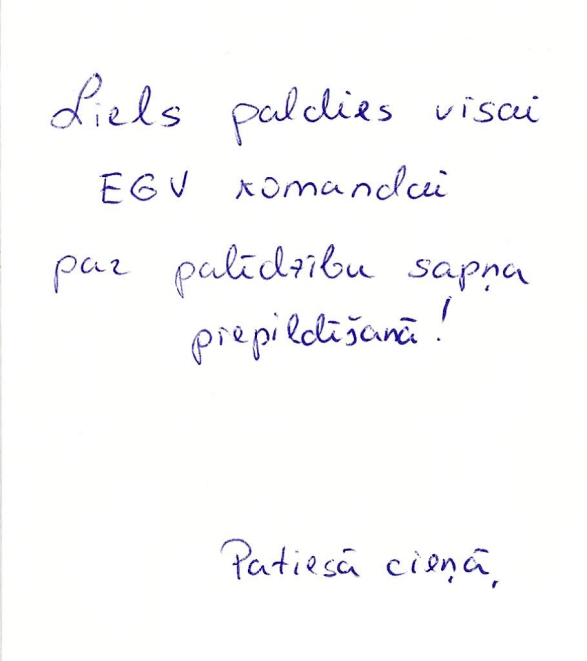 Liels paldies visai
EGV komandai
par palīdzību sapņa
piepildīšanā!
Patiesā cieņā,